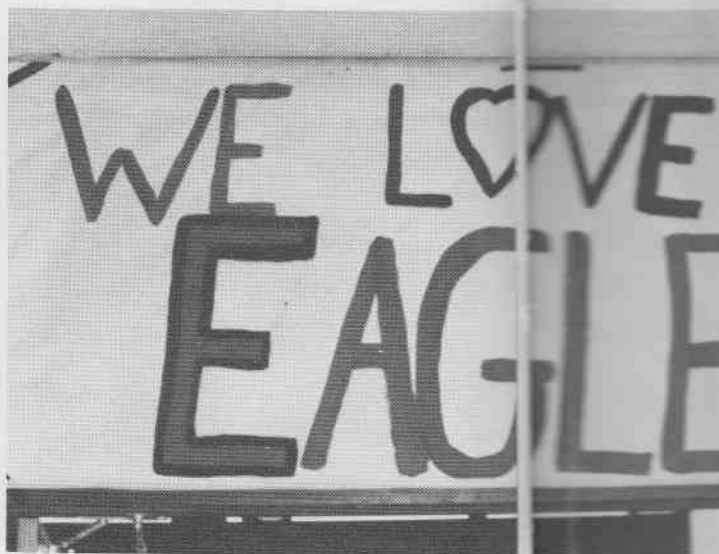 WE LOVE
EAGLE